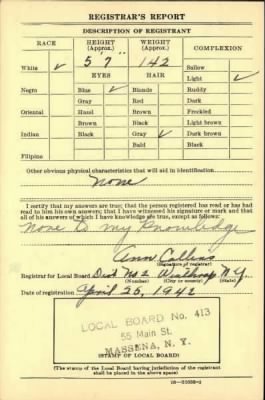 REGISTRAR'S REPORT
DESCRIPTION OF REGISTRANT
RACE HEIGHT (Approx.) WEIGHT (Approx.) COMPLEXION
5' 7" 142 Sallow
White ✓ EYES HAIR Light ✓
Negro Blue ✓ Blonde Ruddy
Gray Red Dark
Oriental Hazel Brown Freckled
Brown Black Light brown
Indian Black Gray ✓ Dark brown
Bald Black
Filipino
Other obvious physical characteristics that will aid in identification
None
I certify that my answers are true; that the person registered has read or has had
read to him his own answers; that I have witnessed his signature or mark and that
all of his answers of which I have knowledge are true, except as follows:
None to my Knowledge
Ann Collins
(Signature of registrar)
Registrar for Local Board Dist No 2 Winthrop N.Y.
(Number) (City or county) (State)
Date of registration April 25, 1942
LOCAL BOARD No. 413
55 Main St.
MASSENA, N. Y.
(STAMP OF LOCAL BOARD)
(The stamp of the Local Board having jurisdiction of the registrant
shall be placed in the above space.)